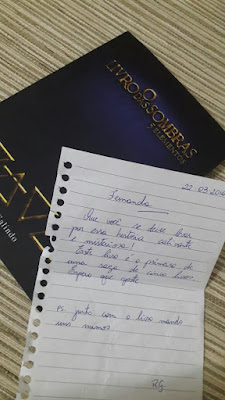 O
LIVRO DAS SOMBRAS
5 ELEMENTOS
Galindo
22.03.2016
Fernanda
Que você se deixe levar
por essa história cativante
e misteriosa!
Este livro é o primeiro de
uma saga de cinco livros
Espero que goste
Ps. junto com o livro mando
uns mimos
RG